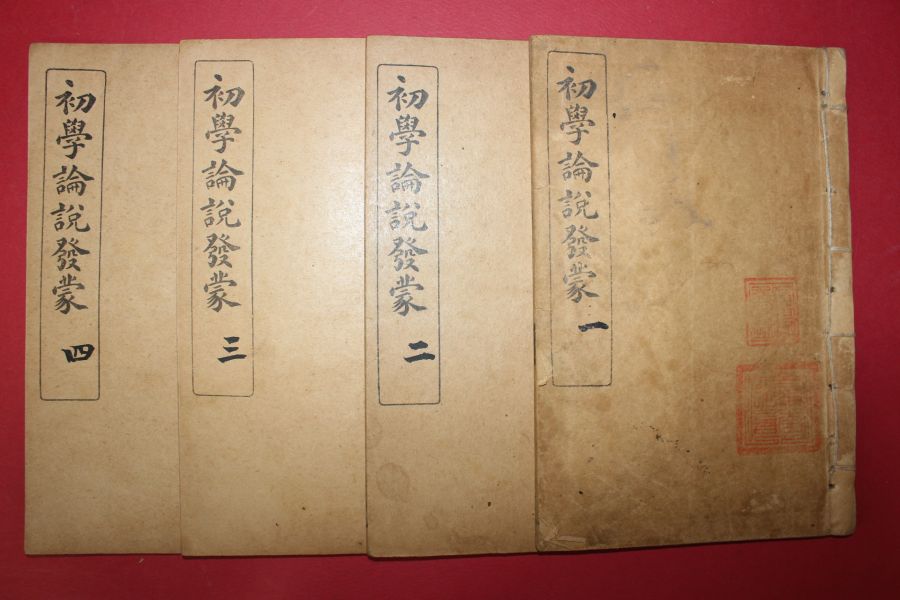 初學論說發蒙 一
初學論說發蒙 二
初學論說發蒙 三
初學論說發蒙 四